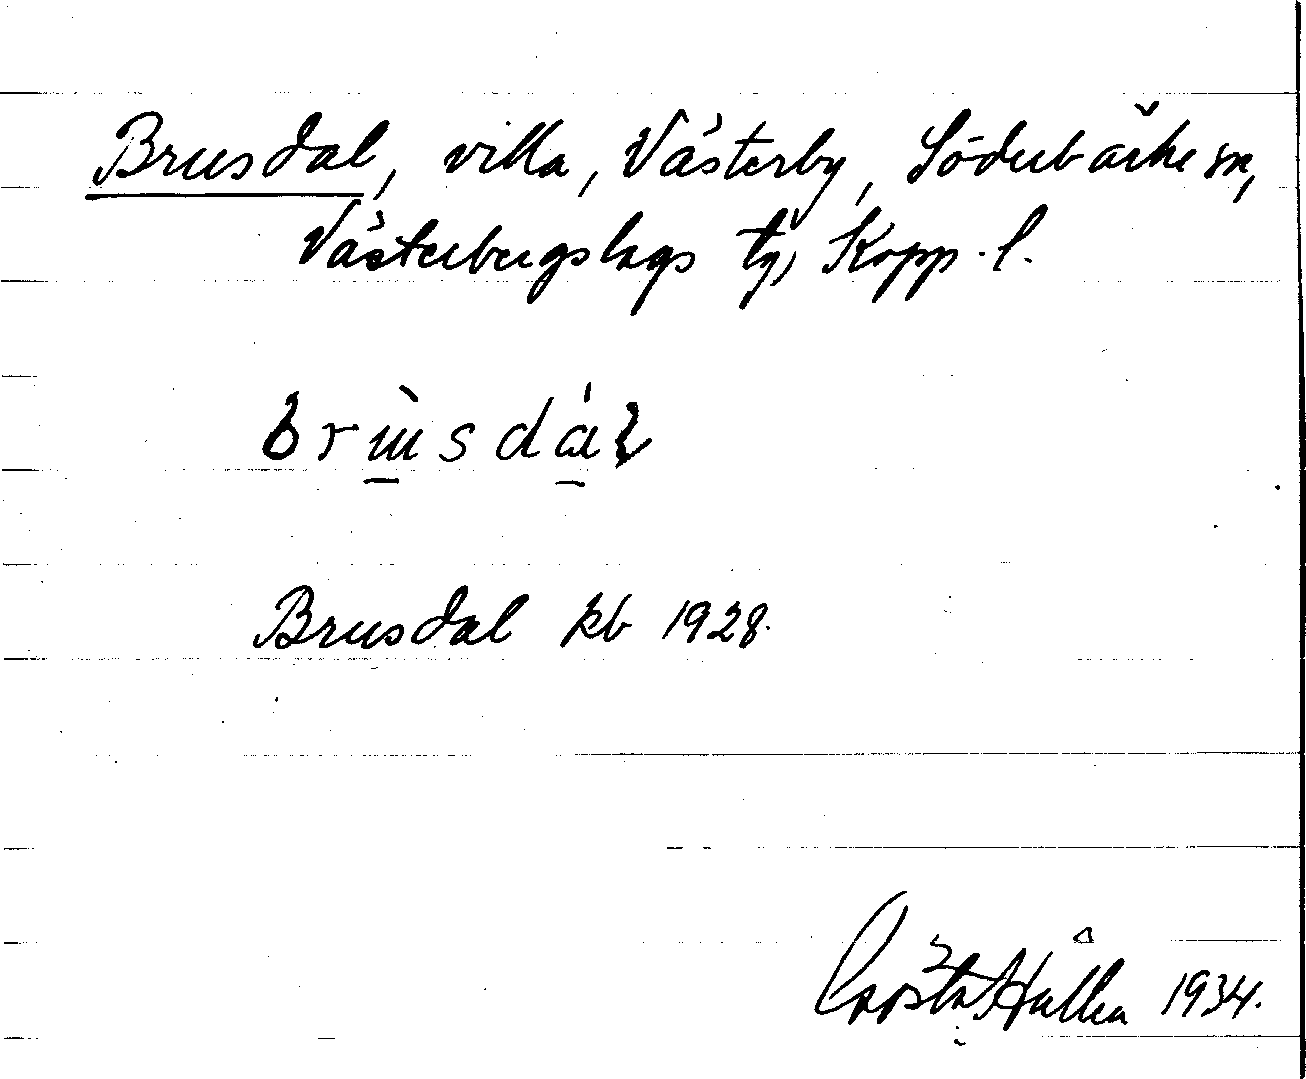 Brusdal, villa, Västerby, Söderbärke sn,
Västerbergslags tg, Kopp. l.
brùsdál
Brusdal kb 1928.
Gösta Hållen 1934.